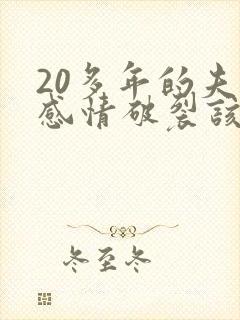 20多年的夫
感情破裂该
冬至冬